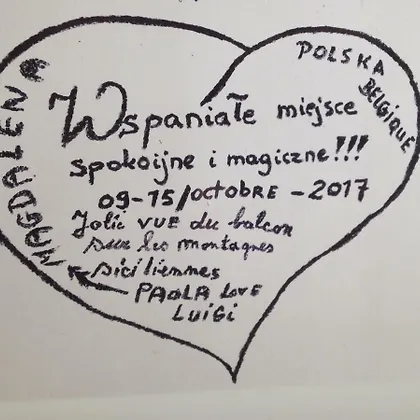 POLSKA
BELGIQUE
MAGDALENA
Wspaniałe miejsce
spokojne i magiczne!!!
09-15/octobre - 2017
Jolie vue du balcon
sur les montagnes
siciliennes
PAOLA LOVE
LUIGI